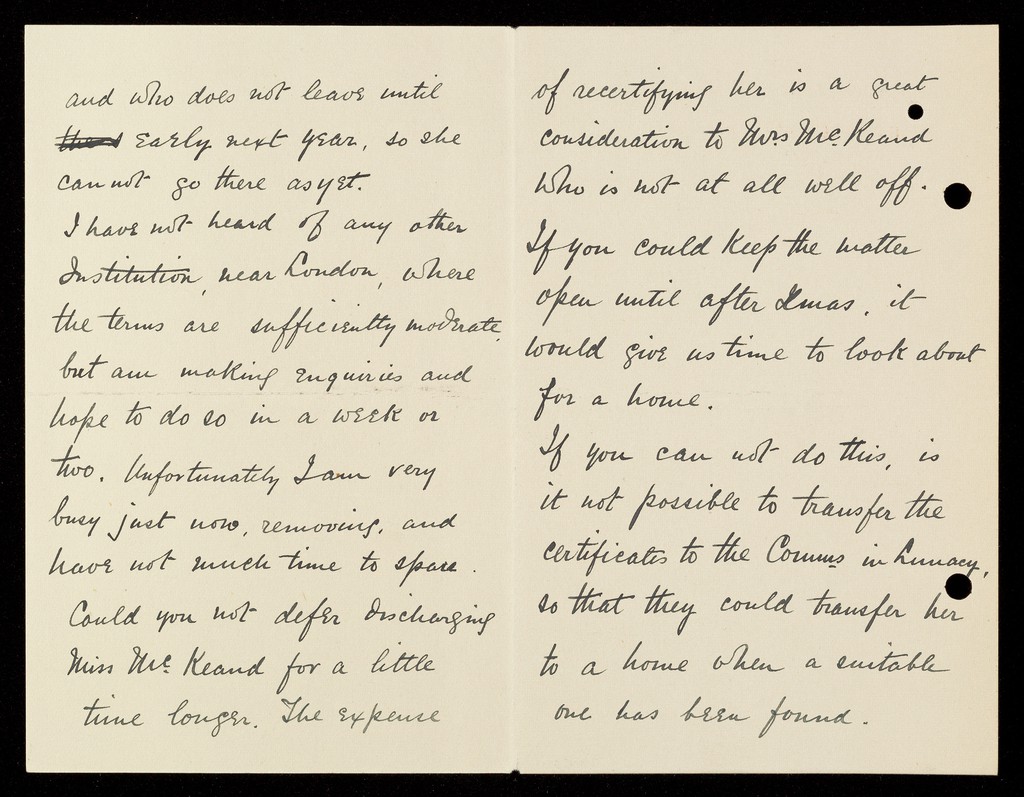 and who does not leave until
early next year, so she
can not go there as yet.
I have not heard of any other
Institution, near London, where
the terms are sufficiently moderate,
but am making enquiries and
hope to do so in a week or
two. Unfortunately I am very
busy just now, removing, and
have not much time to spare.
Could you not defer discharging
Miss McKeand for a little
time longer. The expense
of recertifying her is a great
consideration to Mrs McKeand
who is not at all well off.
If you could keep the matter
open until after Xmas, it
would give us time to look about
for a home.
If you can not do this, is
it not possible to transfer the
certificates to the Comms in Lunacy,
so that they could transfer her
to a home when a suitable
one has been found.